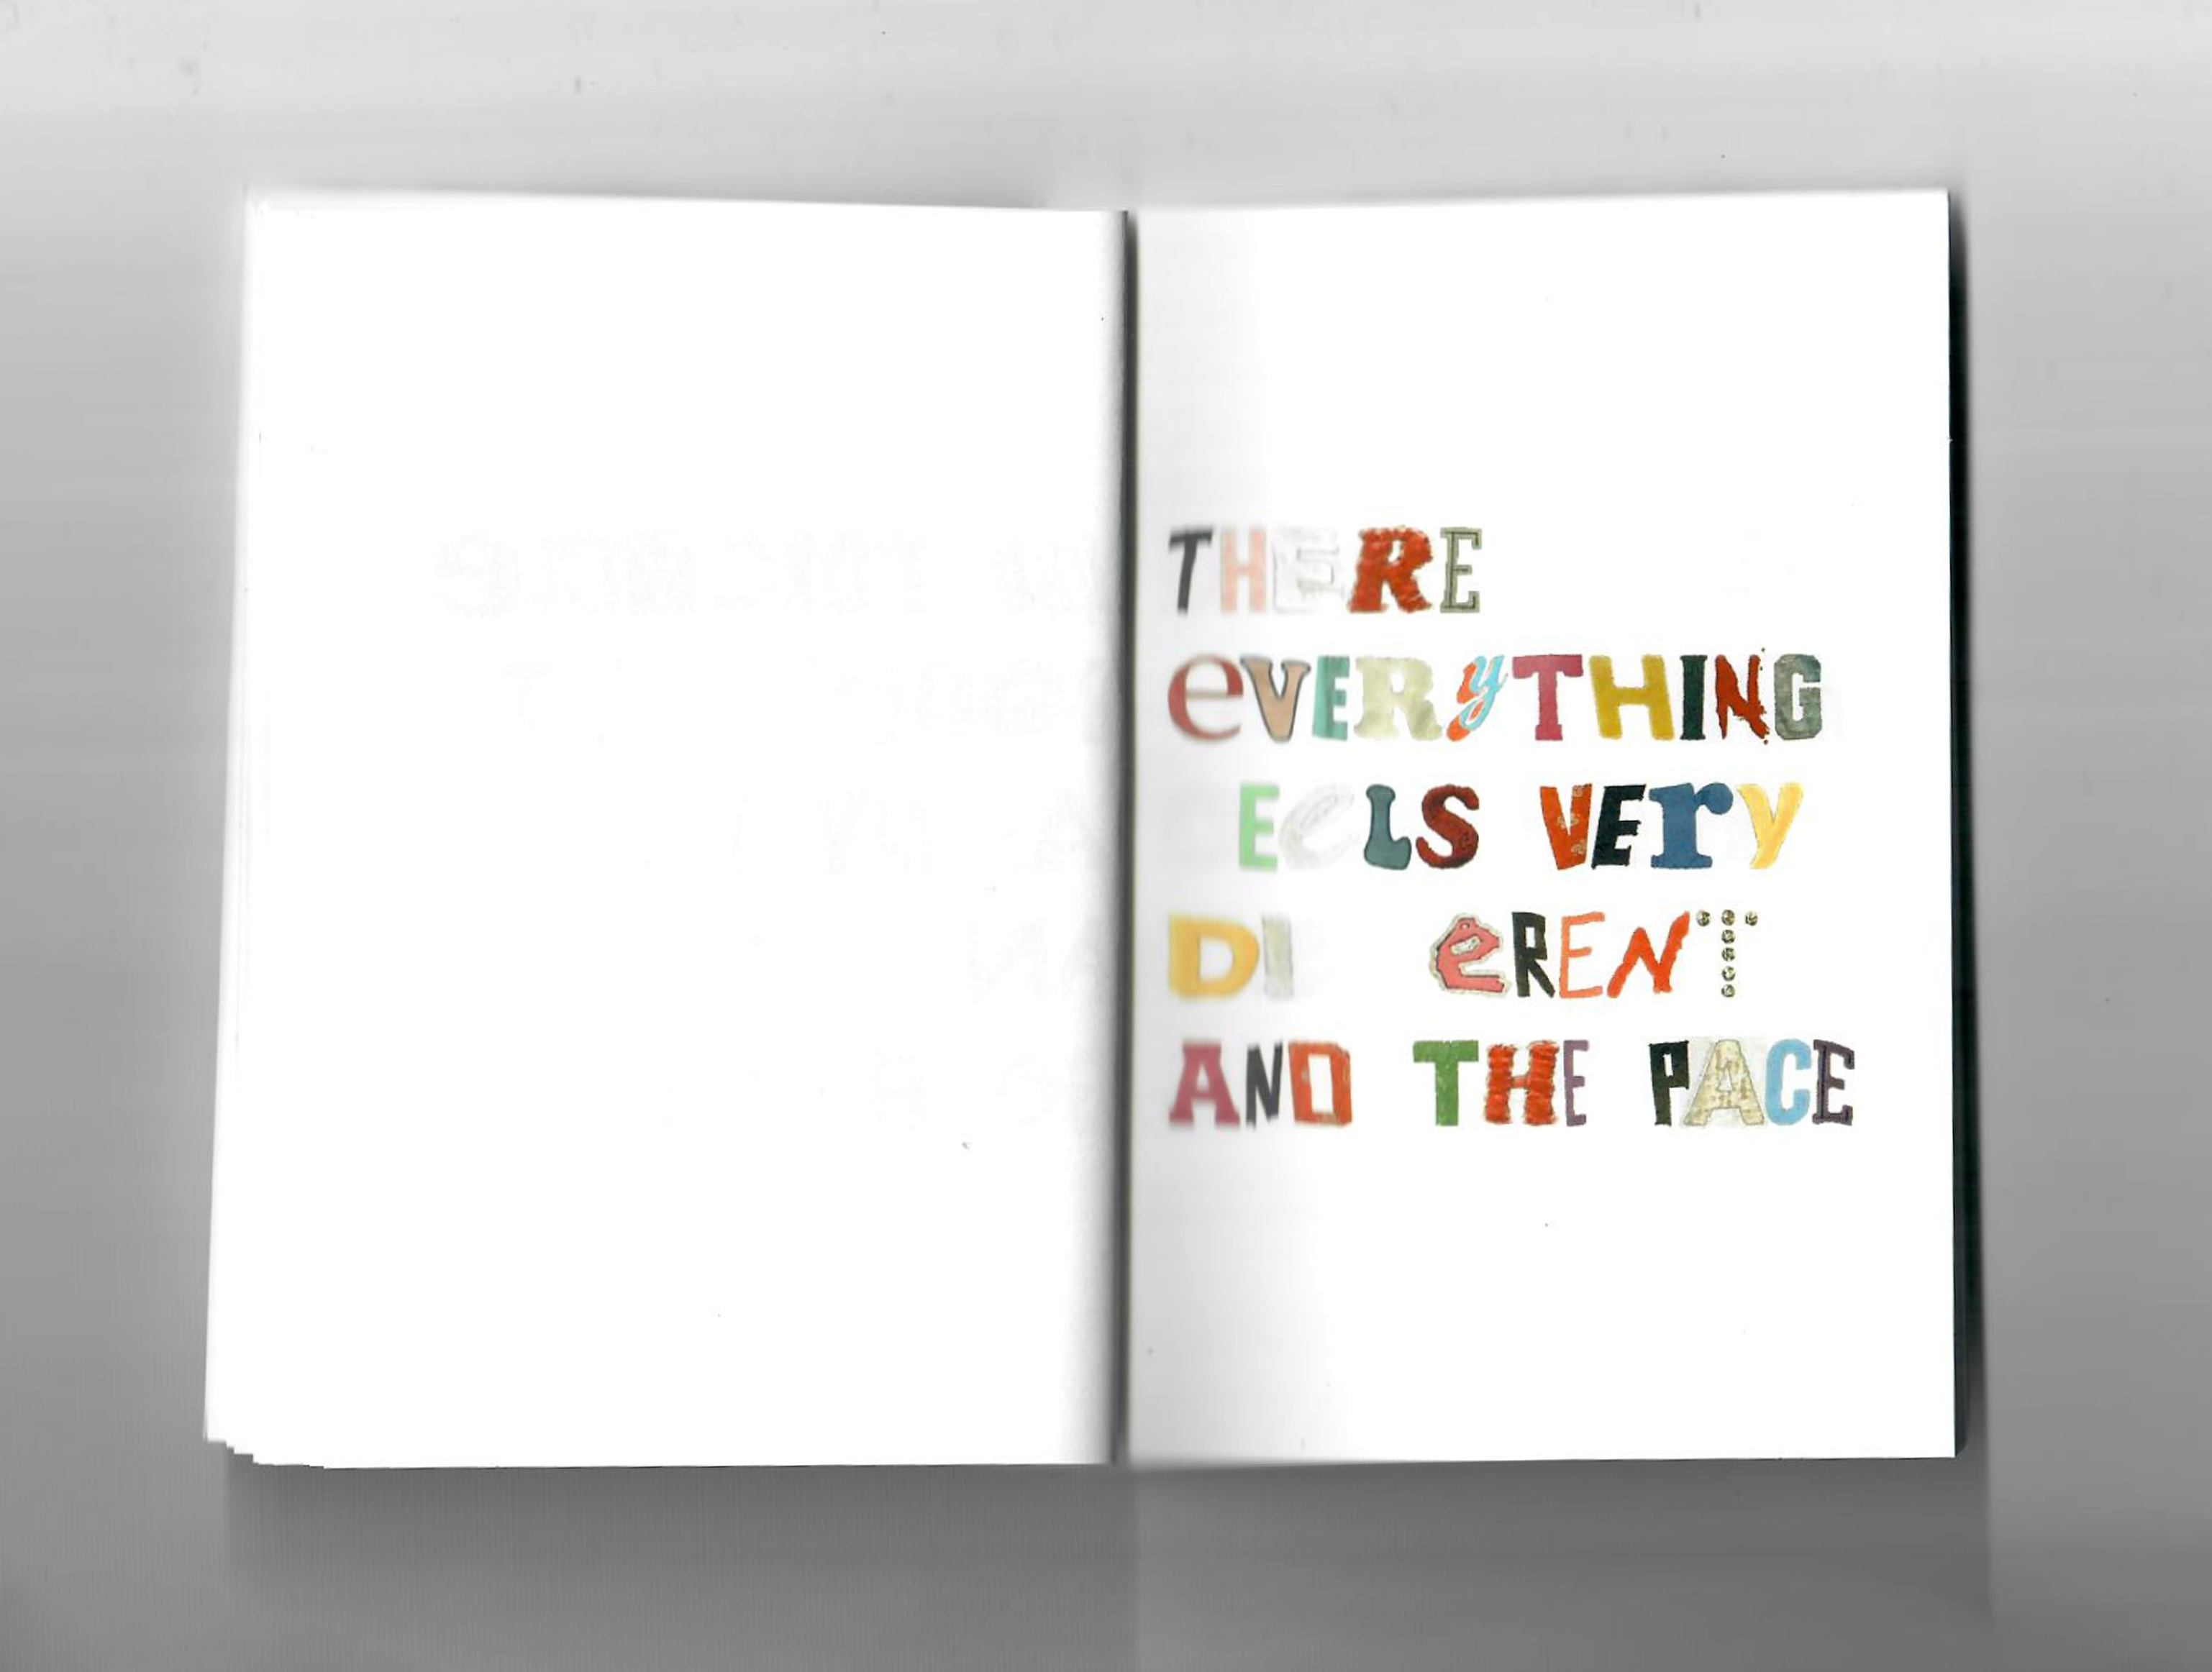 THERE
eVERyTHING
EeLS VEry
DI eRENT
AND THE PACE